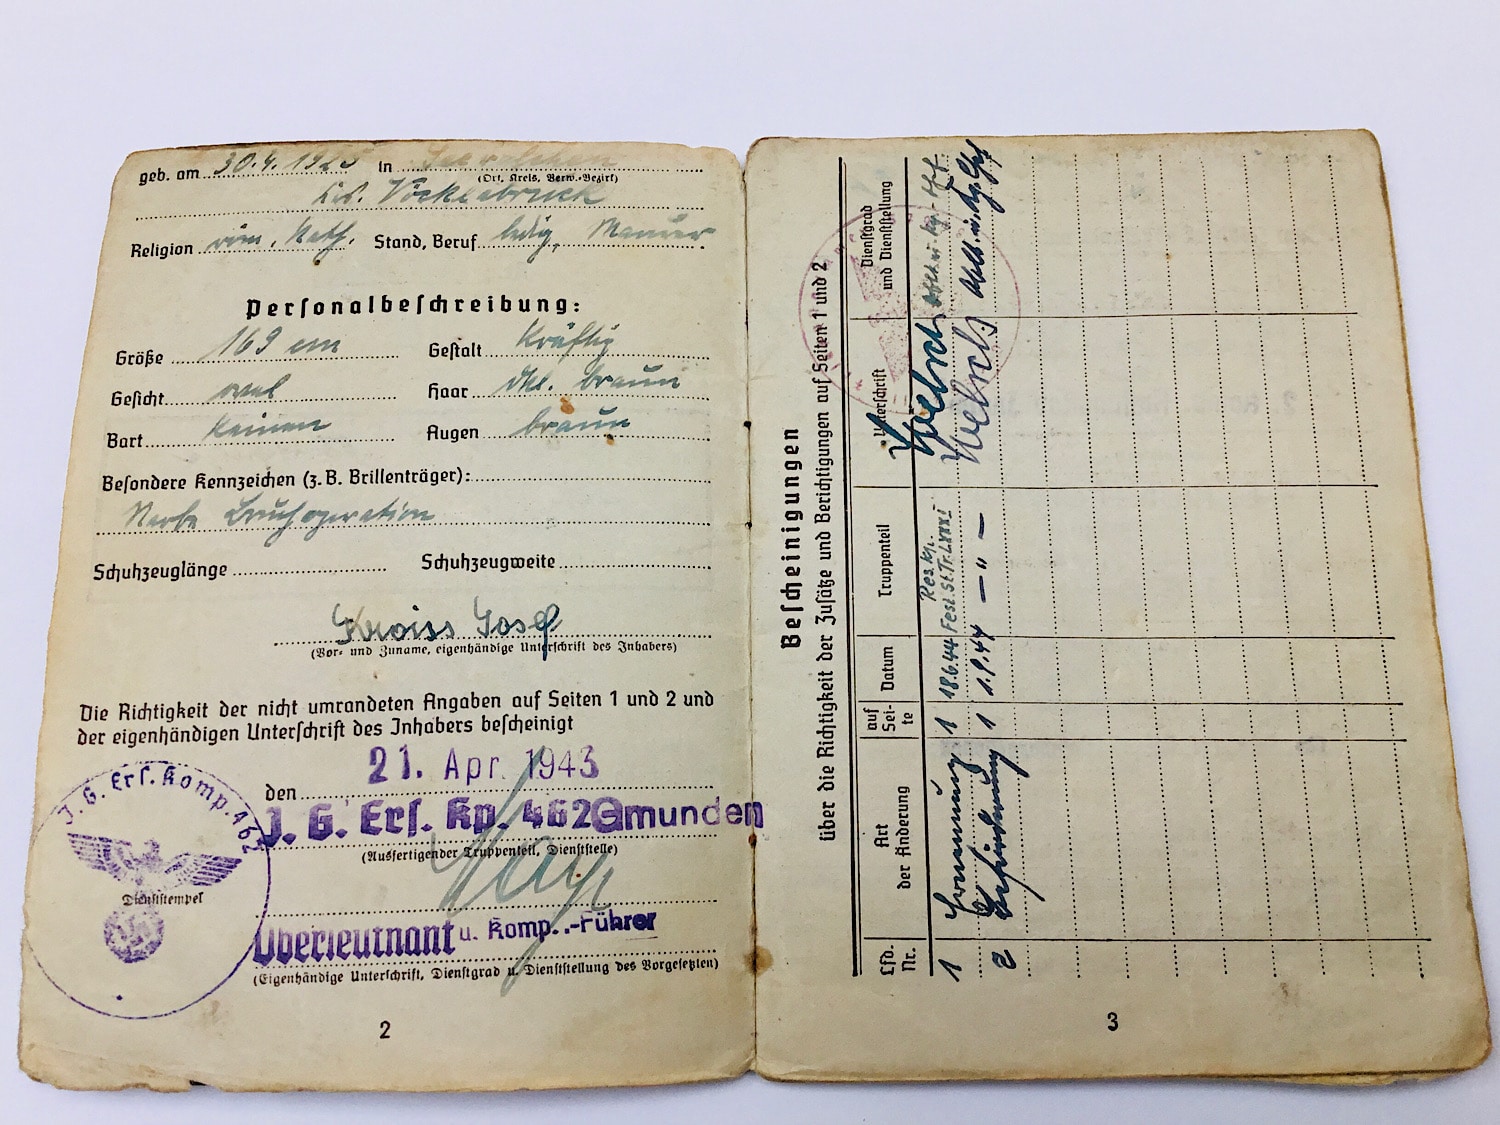 geb. am 30.4.1925 in
(Ort, Kreis, Verw.-Bezirk)
Vöcklabruck
Religion röm. kath. Stand, Beruf ledig, Maurer
Personalbeschreibung:
Größe 169 cm Gestalt kräftig
Gesicht oval Haar dkl. braun
Bart keinen Augen braun
Besondere Kennzeichen (z. B. Brillenträger):
Narbe Bruchoperation
Schuhzeuglänge Schuhzeugweite
Kroiss Josef
(Vor- und Zuname, eigenhändige Unterschrift des Inhabers)
Die Richtigkeit der nicht umrandeten Angaben auf Seiten 1 und 2 und
der eigenhändigen Unterschrift des Inhabers bescheinigt
den 21. Apr. 1943
J. G. Ers. Kp. 462 Gmunden
(Ausfertigender Truppenteil, Dienststelle)
J. G. Ers. Komp. 462
Dienststempel
Oberleutnant u. Komp.-Führer
(Eigenhändige Unterschrift, Dienstgrad u. Dienststellung des Vorgesetzten)
2
Bescheinigungen
über die Richtigkeit der Zusätze und Berichtigungen auf Seiten 1 und 2
Lfd. Nr. Art der Änderung auf Seite Datum Truppenteil Unterschrift Dienstgrad und Dienststellung
1 Ernennung 1 18.6.44 Res. Fest. St. Tr. LXXXI
2 Beförderung 1 1.9.44 — " —
3